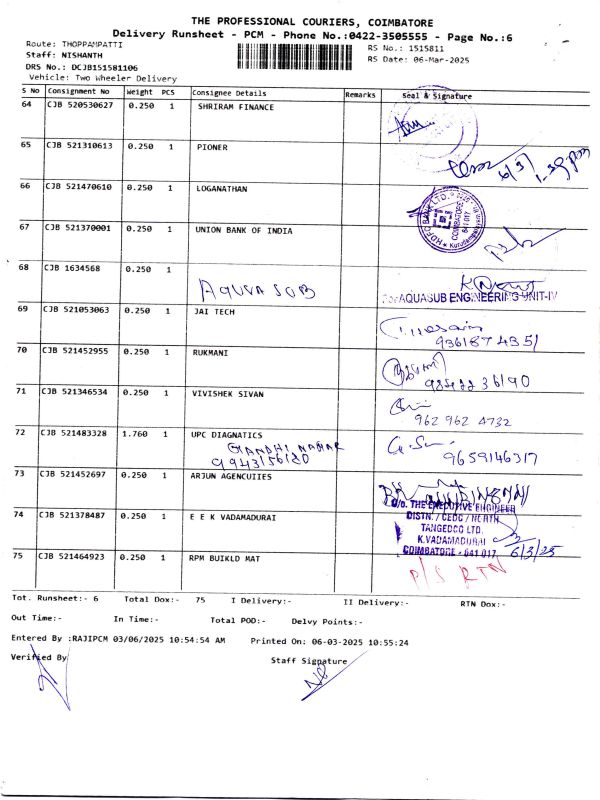 THE PROFESSIONAL COURIERS, COIMBATORE
Delivery Runsheet - PCM - Phone No.:0422-3505555 - Page No.:6
Route: THOPPAMPATTI
RS No.: 1515811
Staff: NISHANTH
RS Date: 06-Mar-2025
DRS No.: DCJB151581106
Vehicle: Two Wheeler Delivery
S No Consignment No Weight PCS Consignee Details Remarks Seal & Signature
64 CJB 520530627 0.250 1 SHRIRAM FINANCE
65 CJB 521310613 0.250 1 PIONER
66 CJB 521470610 0.250 1 LOGANATHAN
HDFC BANK LTD.
COIMBATORE
641 017
67 CJB 521370001 0.250 1 UNION BANK OF INDIA
68 CJB 1634568 0.250 1
AQUVA SUB
For AQUASUB ENGINEERING UNIT-IV
69 CJB 521053063 0.250 1 JAI TECH
70 CJB 521452955 0.250 1 RUKMANI
71 CJB 521346534 0.250 1 VIVISHEK SIVAN
962 962 4732
72 CJB 521483328 1.760 1 UPC DIAGNATICS
GANDHI NAGAR
9943156120
9659146317
73 CJB 521452697 0.250 1 ARJUN AGENCUIIES
O/o. THE EXECUTIVE ENGINEER
74 CJB 521378487 0.250 1 E E K VADAMADURAI
DISTN. / CEDC / NORTH
TANGEDCO LTD.
K.VADAMADURAI
COIMBATORE - 641 017
6/3/25
75 CJB 521464923 0.250 1 RPM BUIKLD MAT
P/S RTN
Tot. Runsheet:- 6 Total Dox:- 75 I Delivery:- II Delivery:- RTN Dox:-
Out Time:- In Time:- Total POD:- Delvy Points:-
Entered By :RAJIPCM 03/06/2025 10:54:54 AM Printed On: 06-03-2025 10:55:24
Verified By Staff Signature